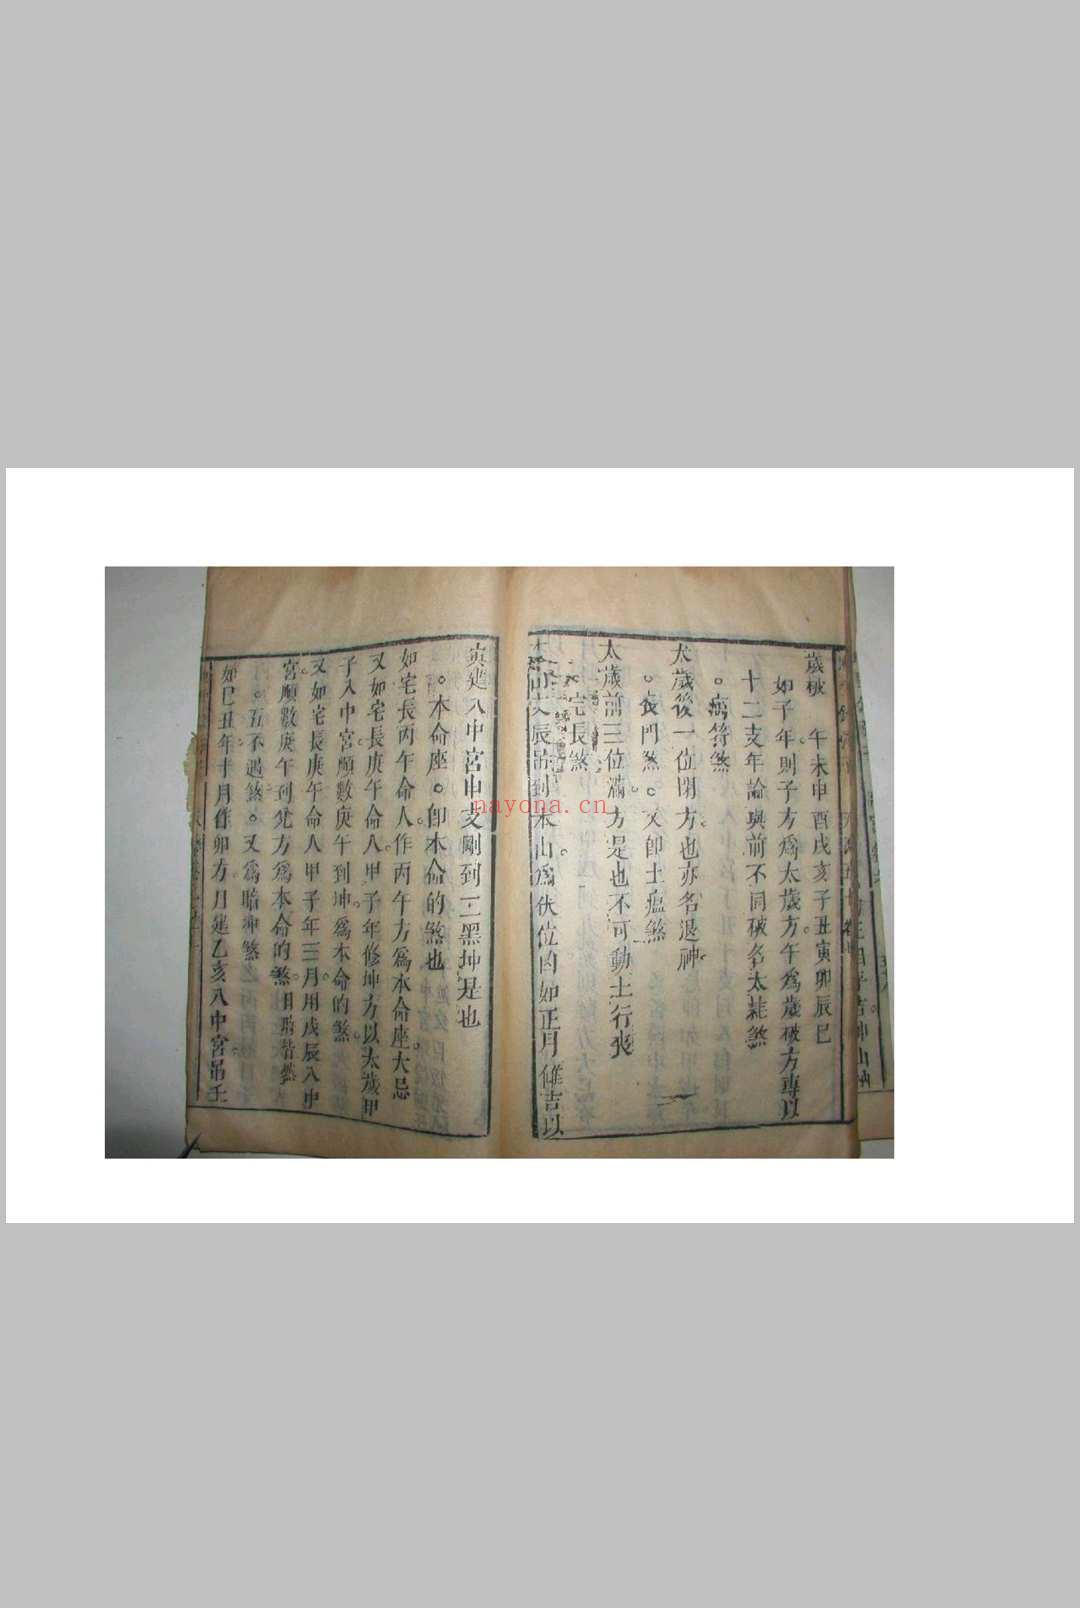 歲破　午未申酉戌亥子丑寅卯辰巳
如子年則子方爲太歲方午爲歲破方專以
十二支年論與前不同破名太耗煞
。病符煞
太歲後一位閉方也亦名退神。
。喪門煞。又即土瘟煞
太歲前三位滿方是也不可動土行喪
。宅長煞
辰吊到本山爲伏位凶如正月修吉以
寅建入中宮申支剛到二黑坤是也
。本命座。即本命的煞也
如宅長丙午命人作丙午方爲本命座大忌
又如宅長庚午命人甲子年修坤方以太歲甲
子入中宮順數庚午到坤爲本命的煞。
又如宅長庚午命人甲子年三月用戊辰入中
宮順數庚午到兌方爲本命的煞。日時皆然
。五不遇煞。又爲暗冲煞
如巳丑年十月作卯方月建乙亥入中宮吊壬
nayona.cn